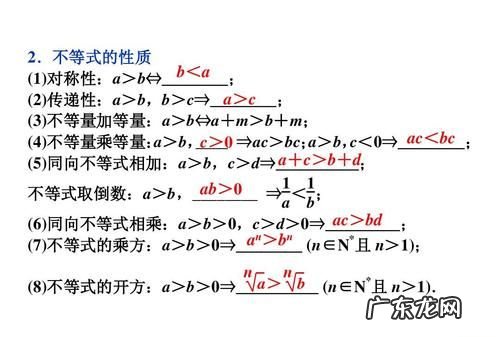 2．不等式的性质
(1)对称性：a＞b⇔ b＜a ；
(2)传递性：a＞b，b＞c⇒ a＞c ；
(3)不等量加等量：a＞b⇔a＋m＞b＋m；
(4)不等量乘等量：a＞b， c＞0 ⇒ac＞bc；a＞b，c＜0⇒ ac＜bc ；
(5)同向不等式相加：a＞b，c＞d⇒ a＋c＞b＋d ；
不等式取倒数：a＞b， ab＞0 ⇒1/a＜1/b；
(6)同向不等式相乘：a＞b＞0，c＞d＞0⇒ ac＞bd ；
(7)不等式的乘方：a＞b＞0⇒ aⁿ＞bⁿ (n∈N*且 n＞1)；
(8)不等式的开方：a＞b＞0⇒ ⁿ√a＞ⁿ√b (n∈N*且 n＞1)．
广东龙网